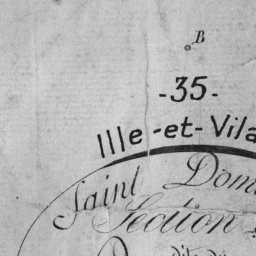 B
-35-
Ille-et-Vila
Saint Dom
Section